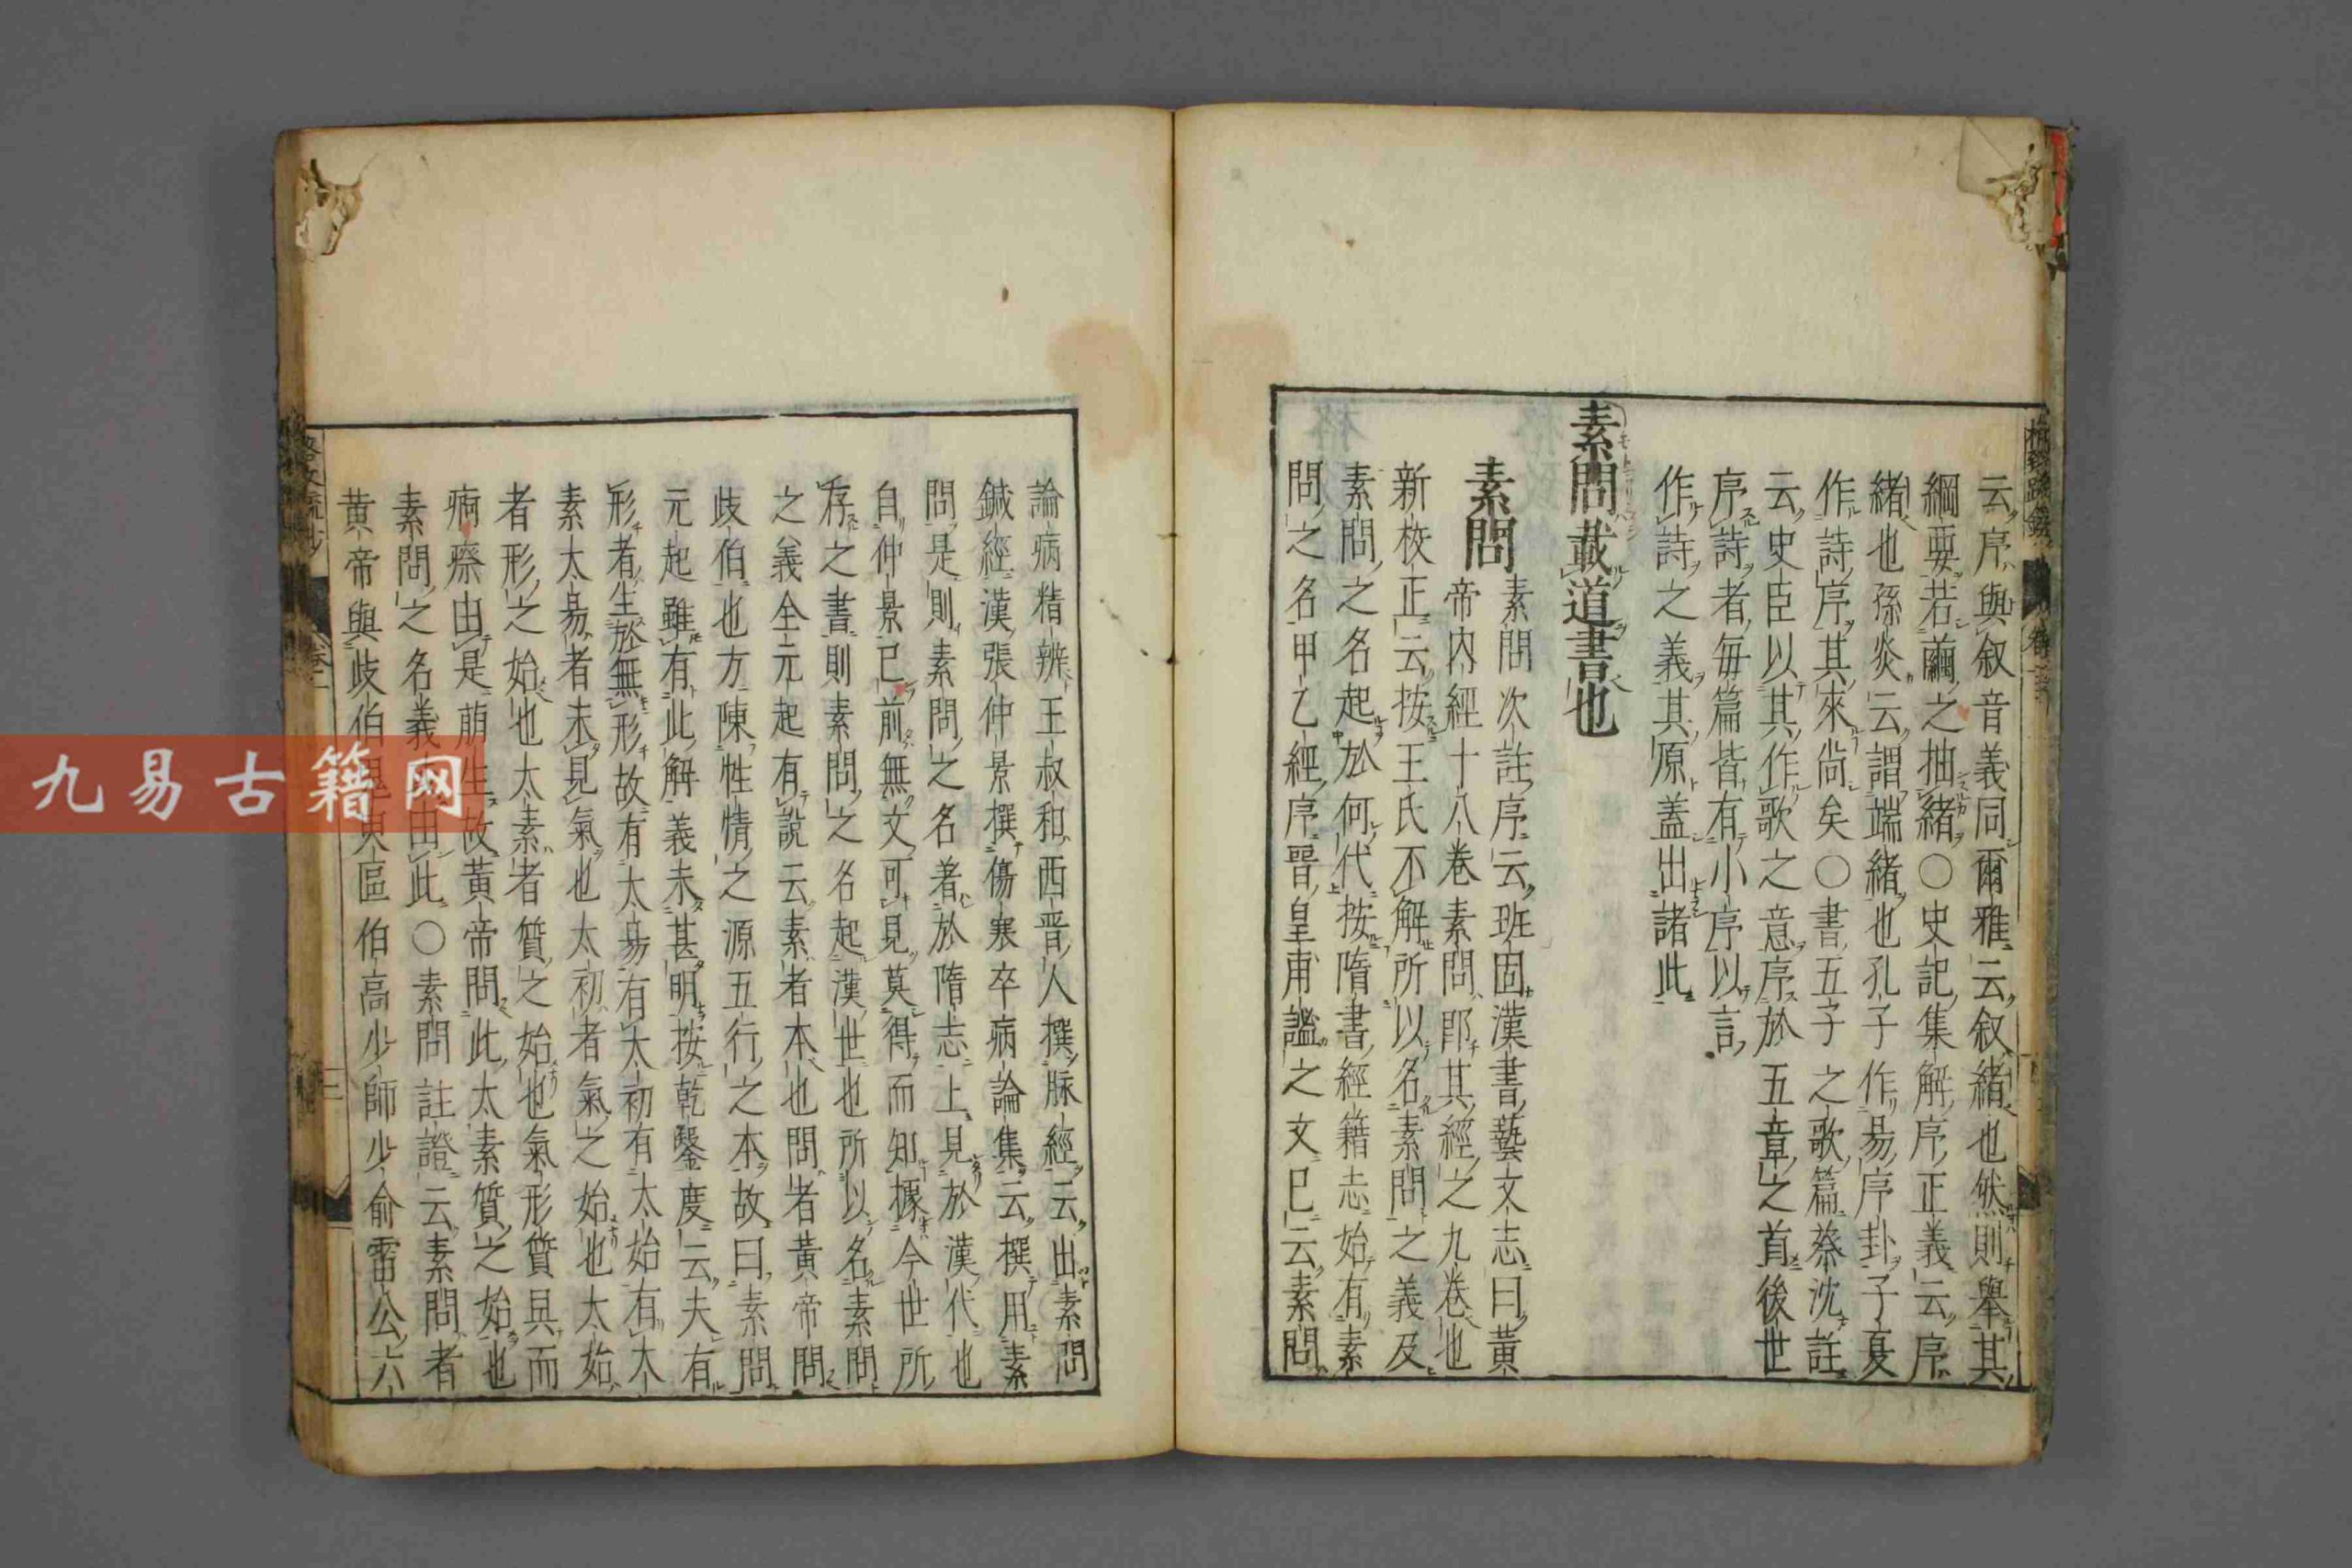 云序與叙音義同爾雅云叙緒也然則舉其
綱要若繭之抽緒○史記集解序正義云序
緒也孫炎云謂端緒也孔子作易序卦子夏
作詩序其來尚矣○書五子之歌篇蔡沈註
云史臣以其作歌之意序於五章之首後世
序詩者毎篇皆有小序以言
作詩之義其原蓋出諸此
素問載道書也
素問
素問次註序云班固漢書藝文志曰黃
帝内經十八卷素問即其經之九卷也
新校正云按王氏不解所以名素問之義及
素問之名起於何代按隋書經籍志始有素
問之名甲乙經序晉皇甫謐之文已云素問
論病精辨王叔和西晋人撰脉經云出素問
鍼經漢張仲景撰傷寒卒病論集云撰用素
問是則素問之名著於隋志上見於漢代也
自仲景已前無文可見莫得而知據今世所
存之書則素問之名起漢世也所以名素問
之義全元起有說云素者本也問者黃帝問
歧伯也方陳性情之源五行之本故曰素問
元起雖有此解義未甚明按乾鑿度云夫有
形者生於無形故有太易有太初有太始有太
素太易者未見氣也太初者氣之始也太始
者形之始也太素者質之始也氣形質具而
痾瘵由是萠生故黃帝問此太素質之始也
素問之名義由此○素問註證云素問者
黃帝與歧伯鬼臾區伯高少師少俞雷公六
卷一
二
九易古籍网